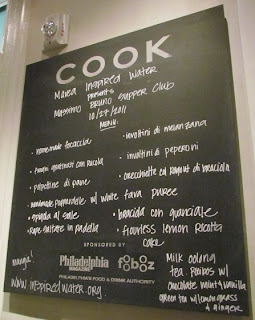 COOK
Marea Inspired Water
presents
Massimo Bruno Supper Club
10/27/2011
MENU:
• homemade focaccia
• involtini di melanzana
• Panini grattinati con rucola
• involtini di peperoni
• polpettine di pane
• orecchiette ed ragout di braciola
• homemade papardelle w/ white fava puree
• grigiata di sale
• focaccia con guanciale
• Rape saltate in padella
• flourless lemon Ricotta
cake
SPONSORED BY
mangia!
Philadelphia
MAGAZINE
foobooz
PHILADELPHIA'S FOOD & DRINK AUTHORITY
www.inspiredwater.org
Milk oolong
tea. Rooibos w/
chocolate mint & vanilla
green tea w/ lemongrass
& ginger